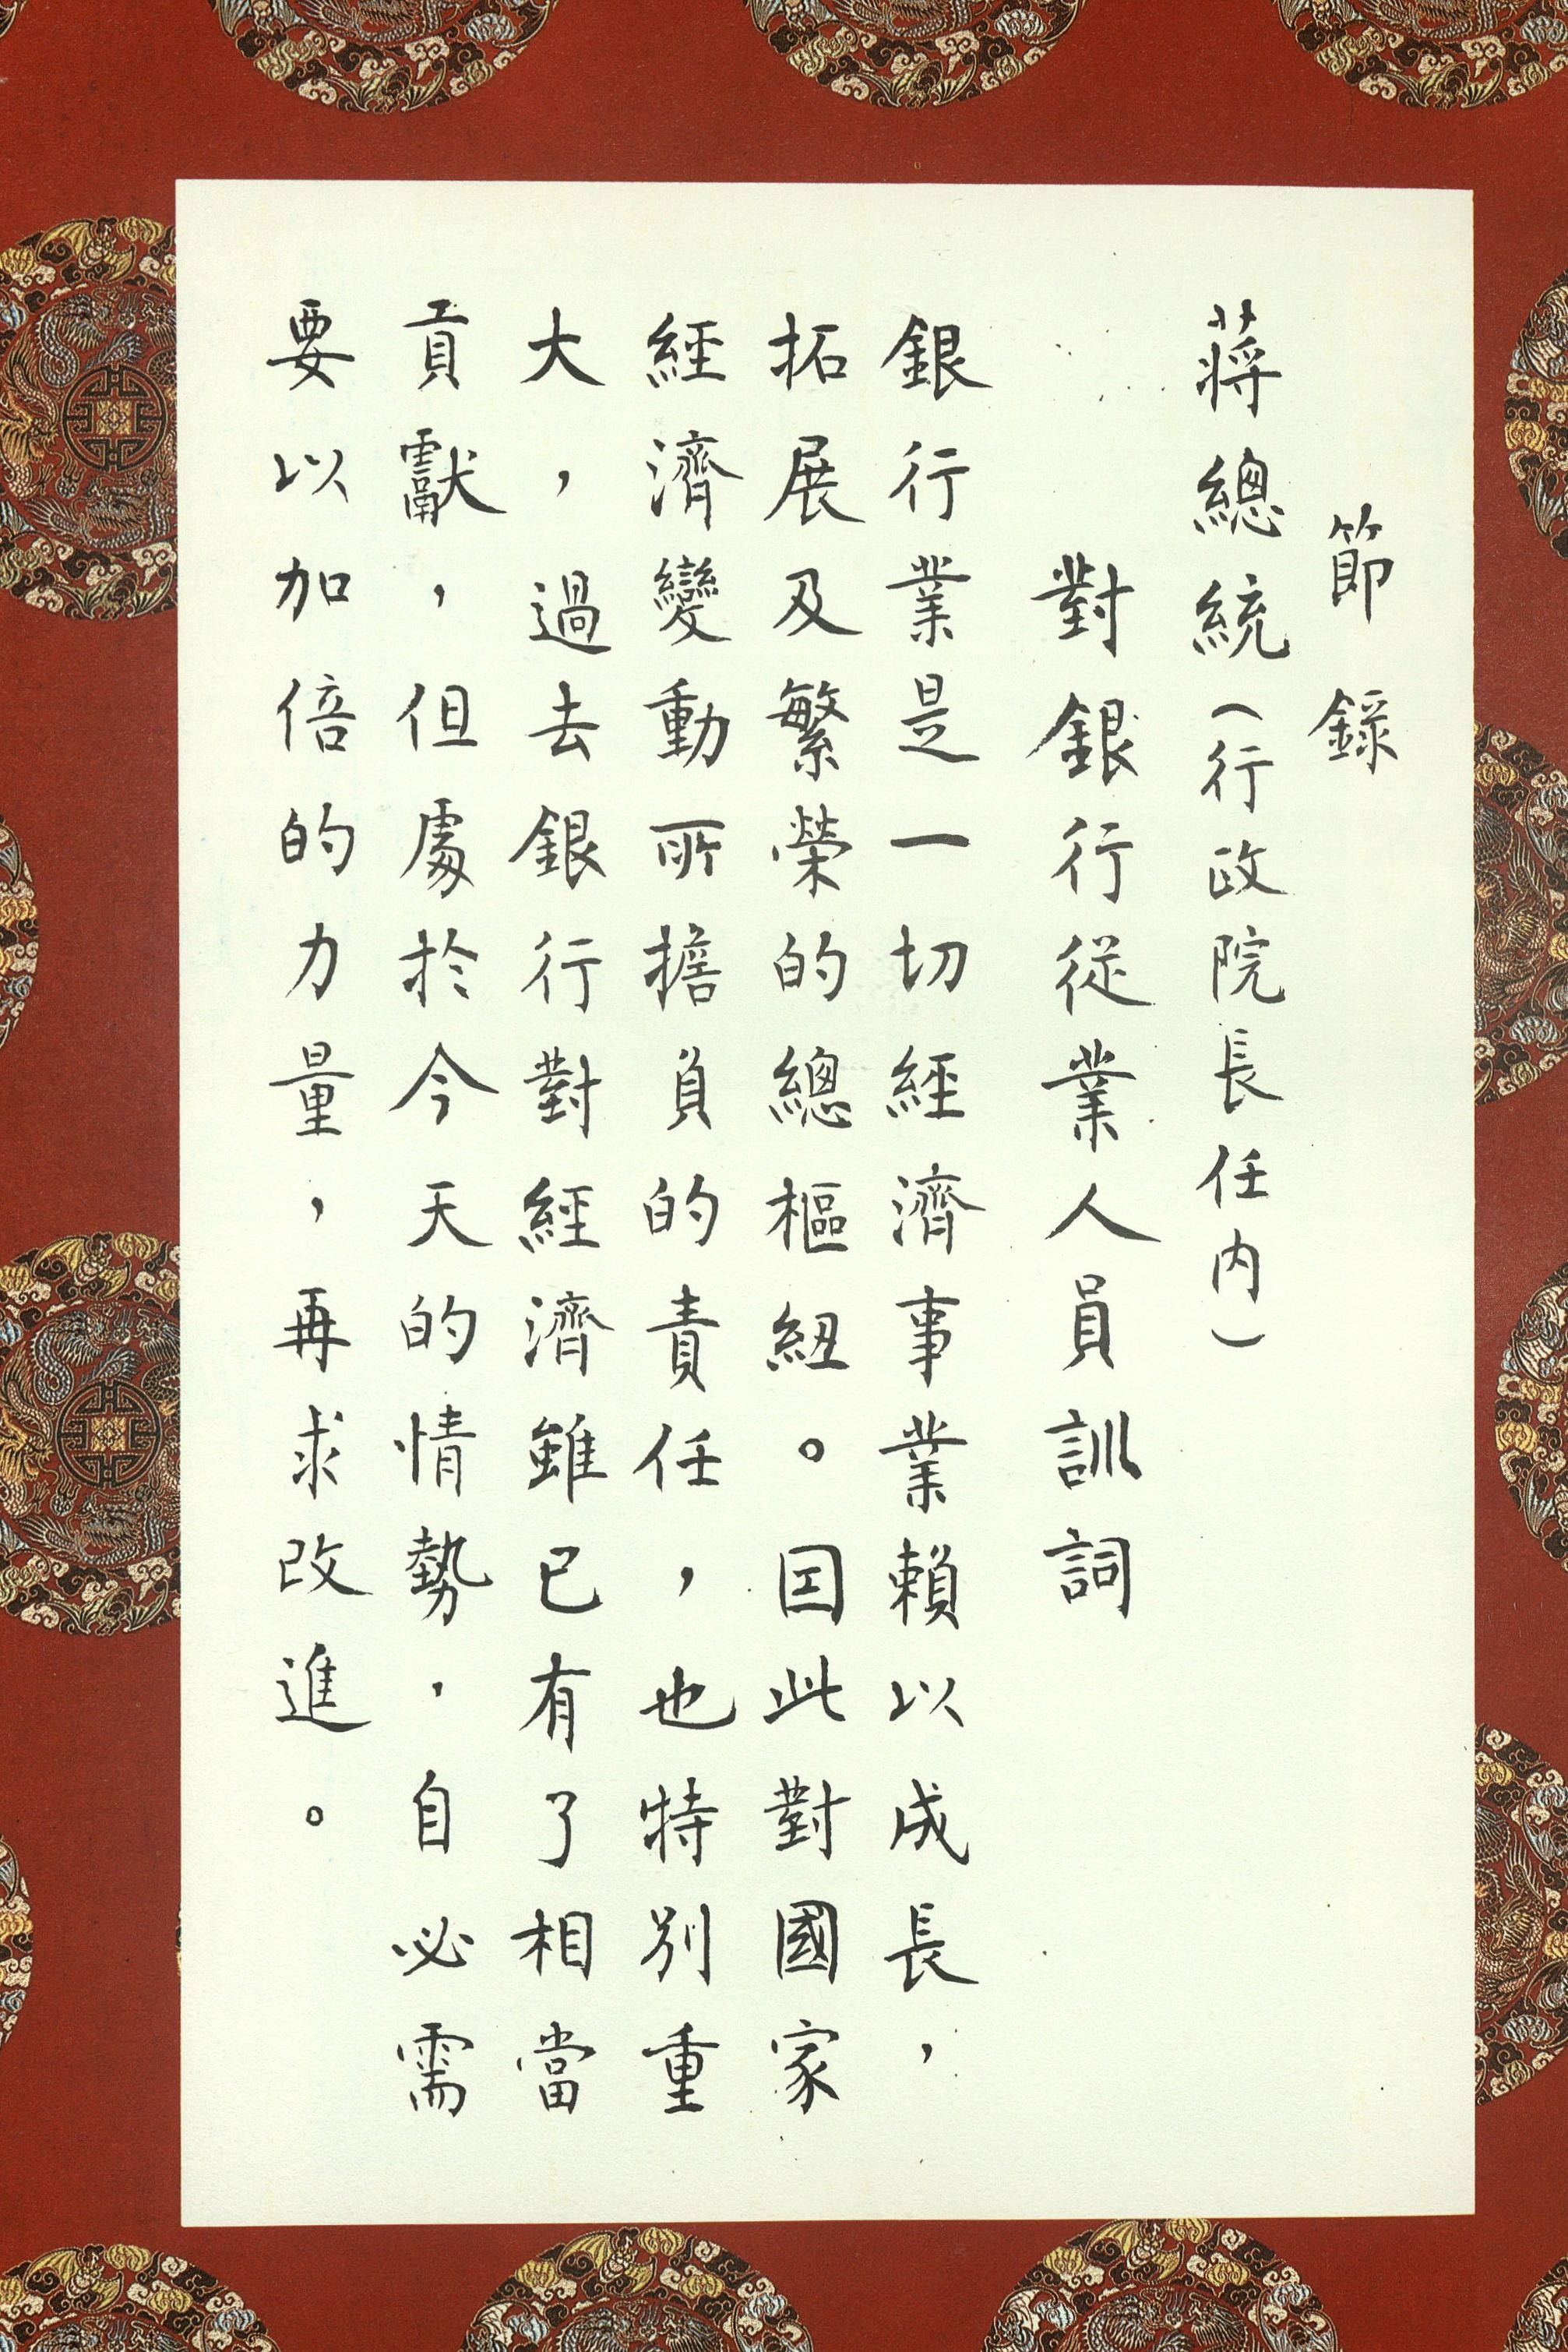 節錄
蔣總統（行政院長任內）
對銀行從業人員訓詞
銀行業是一切經濟事業賴以成長，
拓展及繁榮的總樞紐。因此對國家
經濟變動所擔負的責任，也特別重
大，過去銀行對經濟雖已有了相當
貢獻，但處於今天的情勢，自必需
要以加倍的力量，再求改進。